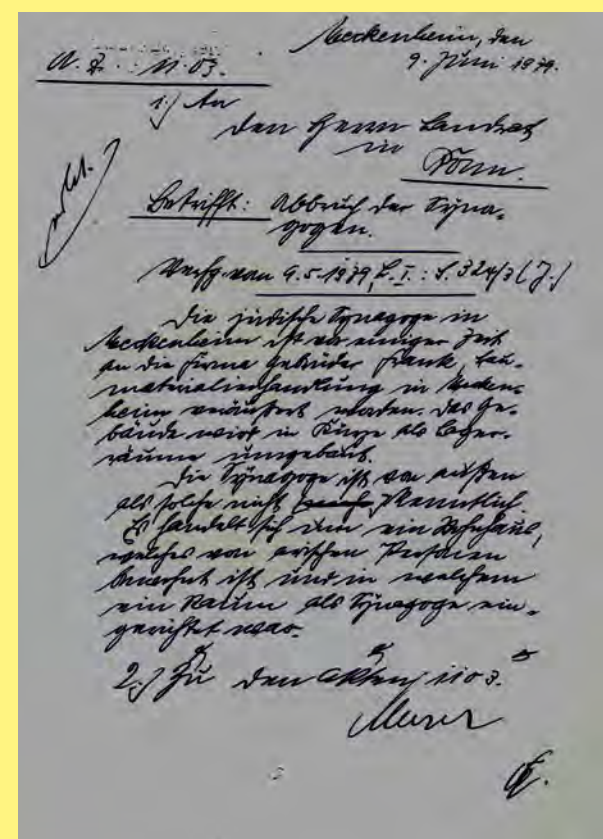 Meckenheim, den
A. Z. 11.03. 9. Juni 1939.
1.) An
den Herrn Landrat
in
Bonn.
Betrifft: Abbruch der Syna-
gogen.
Verfg. von 9.5.1939, L. I. : S. 324/3 (J.)
Die jüdische Synagoge in
Meckenheim ist vor einiger Zeit
an die Firma Gebrüder Frank, Bau-
materialienhandlung in Mecken-
heim veräußert worden. Das Ge-
bäude wird in Kürze als Lager-
räume umgebaut.
Die Synagoge ist von außen
als solche nicht kenntlich.
Es handelt sich um ein Wohnhaus,
welches von arischen Personen
bewohnt ist und in welchem
ein Raum als Synagoge ein-
gerichtet war.
2.) Zu den Akten 1103.